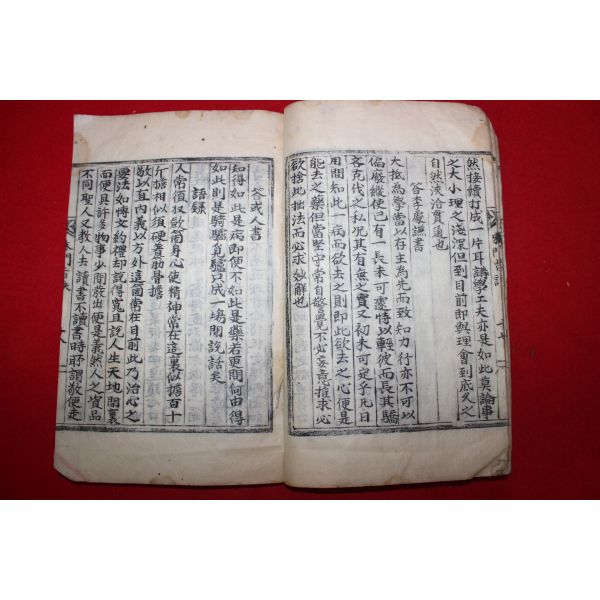 然接續打成一片耳講學工夫亦是如此莫論事
之大小理之淺深但到目前即與理會到底久之
自然浹洽貫通也
答李處謙書
大抵為學當以存主為先而致知力行亦不可以
偏廢縱使已有一長未可遽恃以輕彼而長其驕
吝克伐之私况其有無之實又初未可定乎凡日
用間知此一病而欲去之則即此欲去之心便是
能去之藥但當堅守常自警覺不必妄意推求必
欲捨此拙法而必求妙解也
答或人書
知得如此是病即便不如此是藥若更問何由得
如此則是騎驢覓驢只成一場閒說話矣
語録
人常須收斂箇身心使精神常在這裏似擔百十
斤擔相似須硬着肋骨擔
敬以直內義以方外這箇常在目前此乃治心之
要法如博文約禮却說得寬且說人生天地間裏
面便具許多物事少間發出便是義然人之資品
不同聖人又教人去讀書不讀書時所謂敬便走